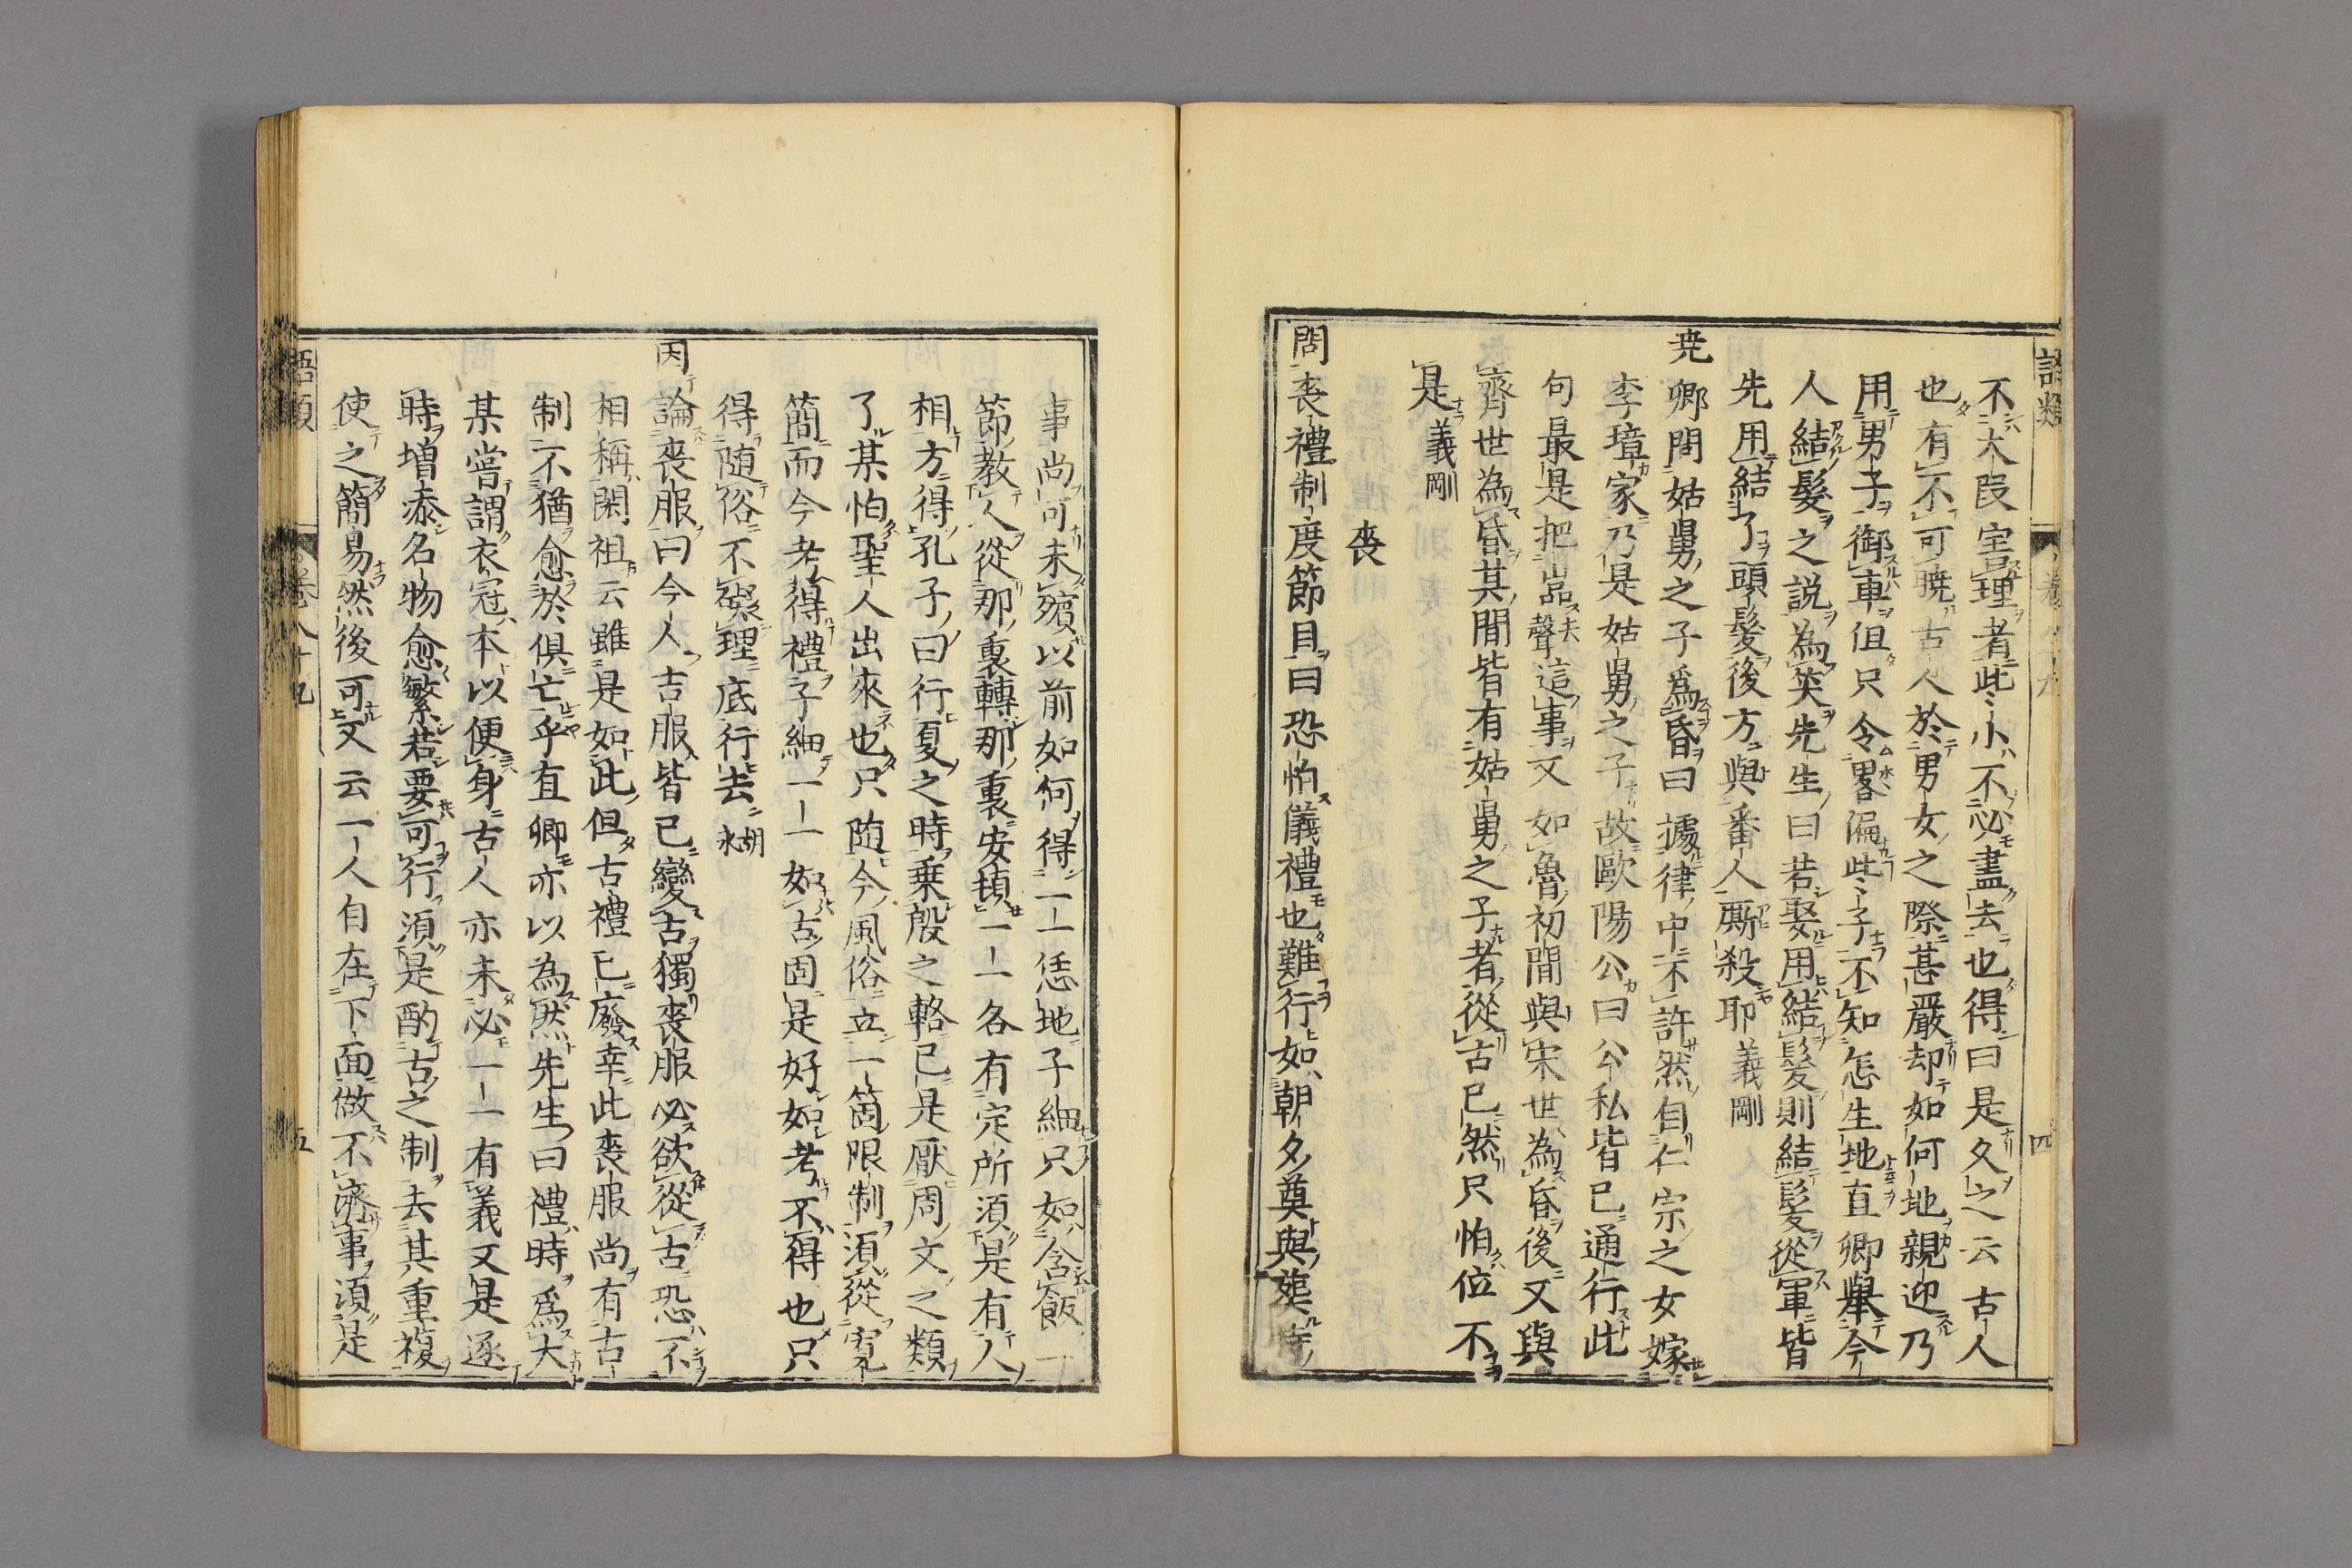 不大段害理者此小小不必盡去也得曰是久之云古人
也有不可曉古人於男女之際甚嚴却如何地親迎乃
用男子御車但只令畧偏些子不知怎生地直卿舉今
人結髮之説為笑先生曰若娶用結髮則結髮從軍皆
先用結了頭髮後方與番人厮殺耶義剛
尭卿問姑舅之子爲昏曰據律中不許然自仁宗之女嫁
李璋家乃是姑舅之子故歐陽公曰公私皆已通行此
句最是把嵓聲夫這事又如魯初間與宋世為昏後又與
齊世為昏其間皆有姑舅之子者從古已然只怕位不
是義剛
喪
問喪禮制度節目曰恐怕儀禮也難行如朝夕奠與葬時
事尚可未殯以前如何得一一恁地子細只如含飯一
節教人從那裏轉那裏安頓一一各有定所須是有人
相方得孔子曰行夏之時乗殷之輅已是厭周文之類
了某怕聖人出來也只随今風俗立一箇限制須從寛
簡而今考得禮子細一一如古固是好如考不得也只
得随俗不礙理底行去胡泳
因論喪服曰今人吉服皆已變古獨喪服必欲從古恐不
相稱閎祖云雖是如此但古禮已廢幸此喪服尚有古
制不猶愈於俱亡乎直卿亦以為然先生曰禮時爲大
某嘗謂衣冠本以便身古人亦未必一一有義又是逐
時增添名物愈繁若要可行須是酌古之制去其重複
使之簡易然後可又云一人自在下面做不濟事須是
語類
卷八十九
五
語類
四